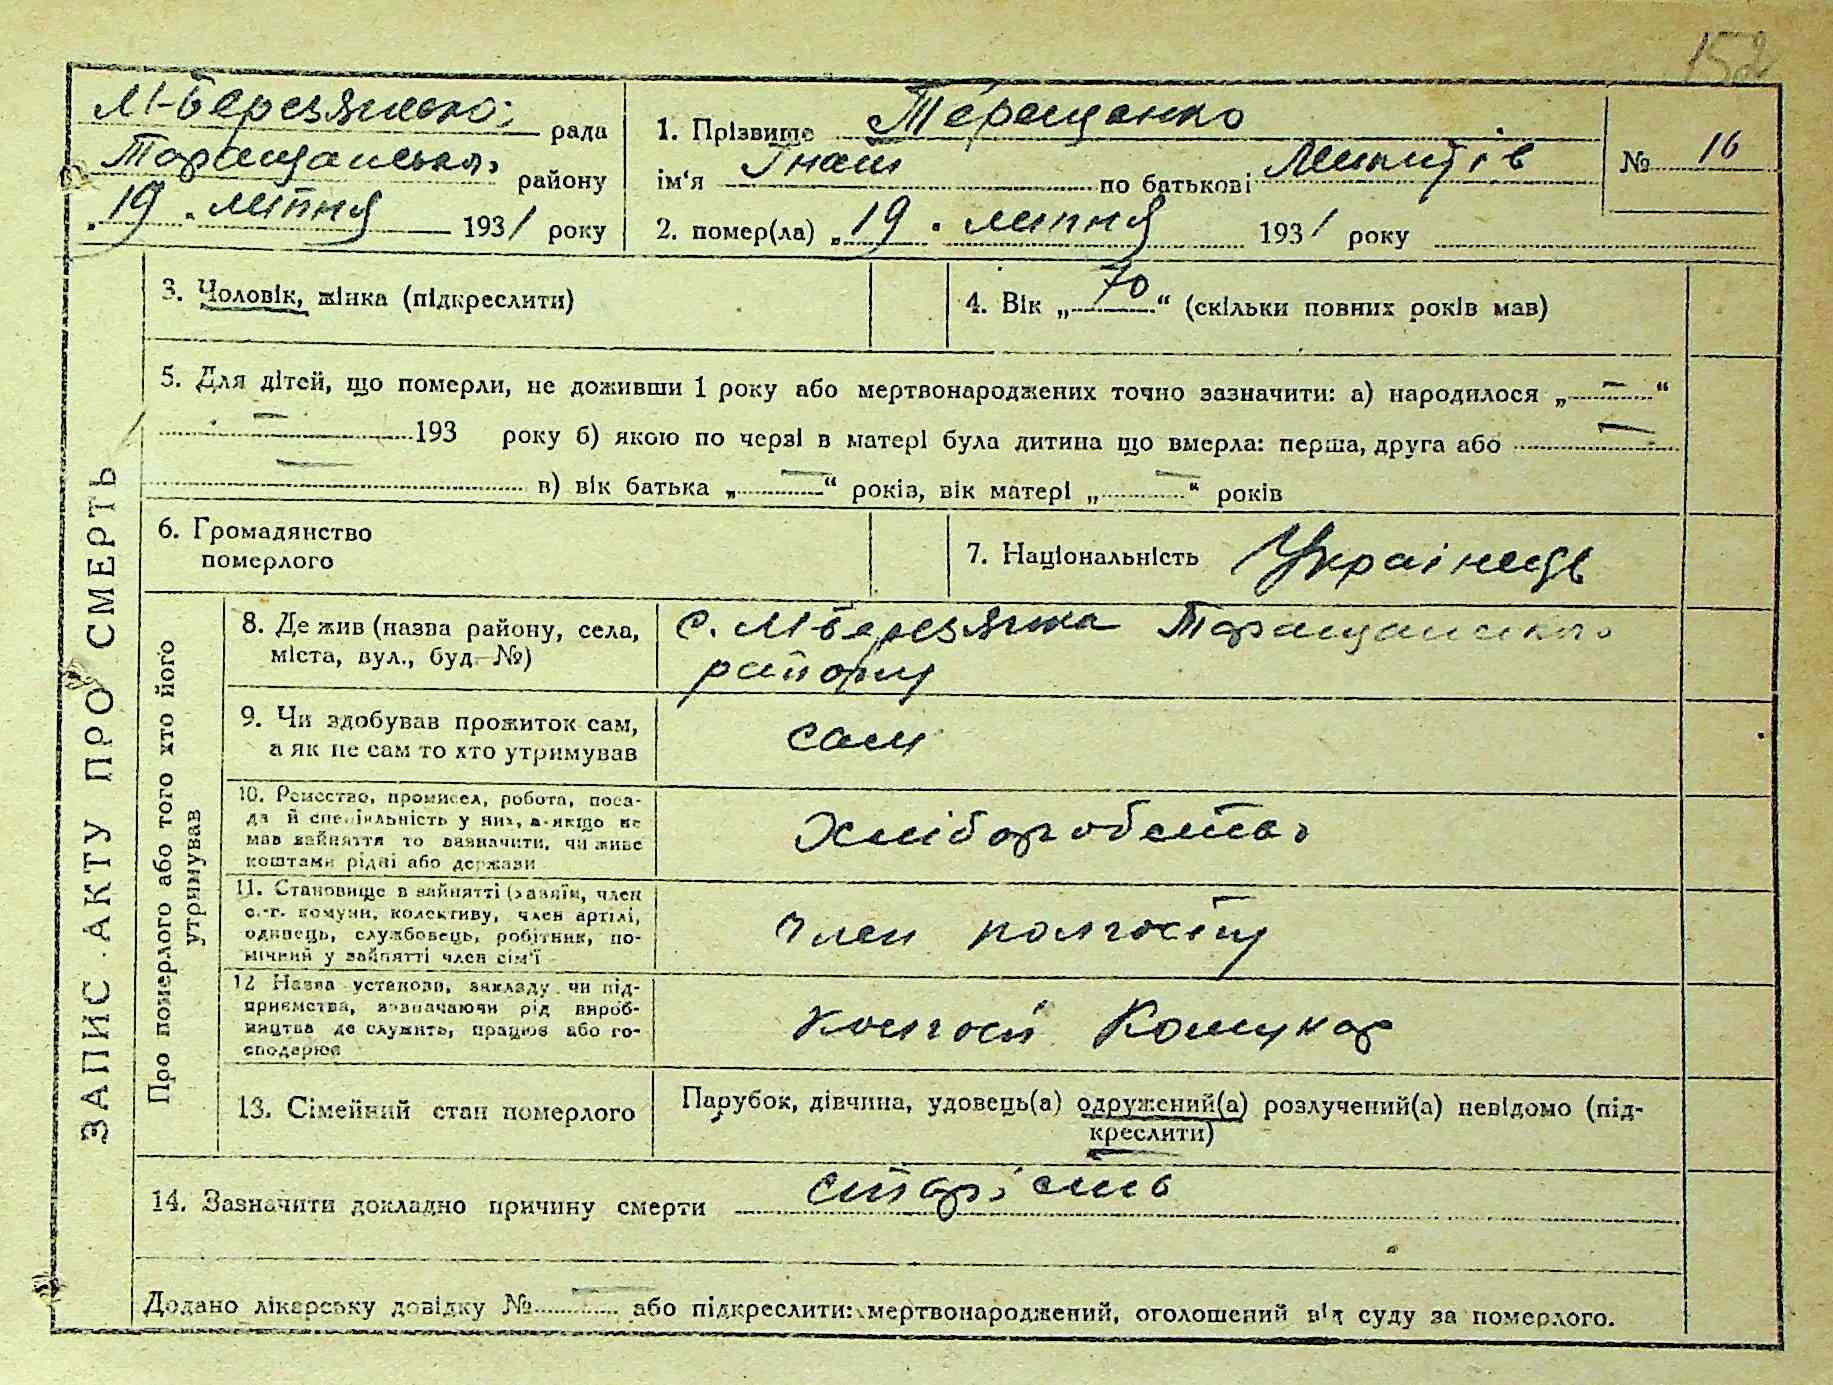 152
М-Березянсько: рада
Таращансько, району
„19. липня 1931 року
1. Прізвище Терещенко
ім‘я Гнат по батькові Микитів
№ 16
2. помер(ла) „19. липня 1931 року
ЗАПИС АКТУ ПРО СМЕРТЬ
3. Чоловік, жінка (підкреслити)
4. Вік „70“ (скільки повних років мав)
5. Для дітей, що померли, не доживши 1 року або мертвонароджених точно зазначити: а) народилося „ — “
— 193 року б) якою по черзі в матері була дитина що вмерла: перша, друга або —
— в) вік батька „ — “ років, вік матері „ — “ років
6. Громадянство
померлого
7. Національність Українець
Про померлого або того хто його
утримував
8. Де жив (назва району, села,
міста, вул., буд. №)
с. М Березянка Таращансько
району
9. Чи здобував прожиток сам,
а як не сам то хто утримував
сам
10. Ремество, промисел, робота, поса-
да й спеціяльність у них, а якщо не
мав зайняття то зазначити, чи живе
коштами рідні або держави
Хліборобство
11. Становище в зайнятті (хазяїн, член
с.-г. комуни, колективу, член артілі,
одинець, службовець, робітник, по-
мічний у зайнятті член сім‘ї
Член колгоспу
12 Назва установи, закладу чи під-
приємства, зазначаючи рід вироб-
ництва де служить, працює або го-
сподарює
колгосп Комунар
13. Сімейний стан померлого
Парубок, дівчина, удовець(а) одружений(а) розлучений(а) невідомо (під-
креслити)
14. Зазначити докладно причину смерти старість
Додано лікарську довідку № — або підкреслити: мертвонароджений, оголошений від суду за померлого.